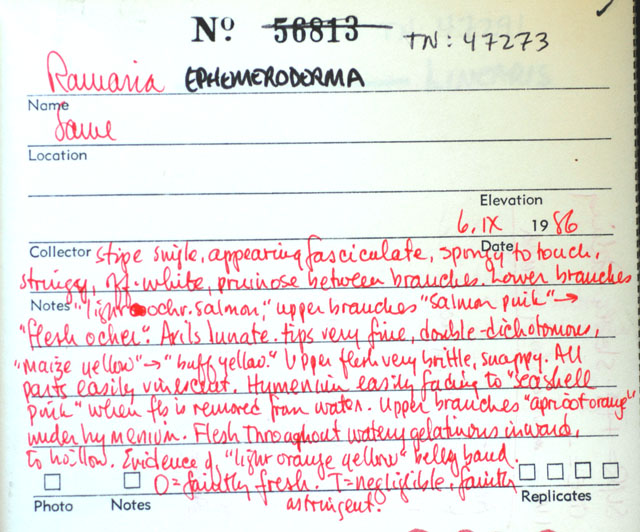 Nº 56813 TN: 47273
Ramaria EPHEMERODERMA
Name
Same
Location
Elevation
6. IX 1986
Collector Date
stipe single, appearing fasciculate, spongy to touch,
stringy, off-white, pruinose between branches. Lower branches
Notes "light ochr. salmon," upper branches "salmon pink" →
"flesh ocher". Axils lunate. tips very fine, double-dichotomous,
"Maize yellow" → "buff yellow." Upper flesh very brittle, snappy. All
parts easily vinescent. Hymenium easily fading to "seashell
pink" when fb is removed from water. Upper branches "apricot orange"
under hymenium. Flesh throughout watery gelatinous inward,
to hollow. Evidence of "light orange yellow" belly band.
O = faintly fresh. T = negligible, faintly
astringent.
Photo Notes Replicates